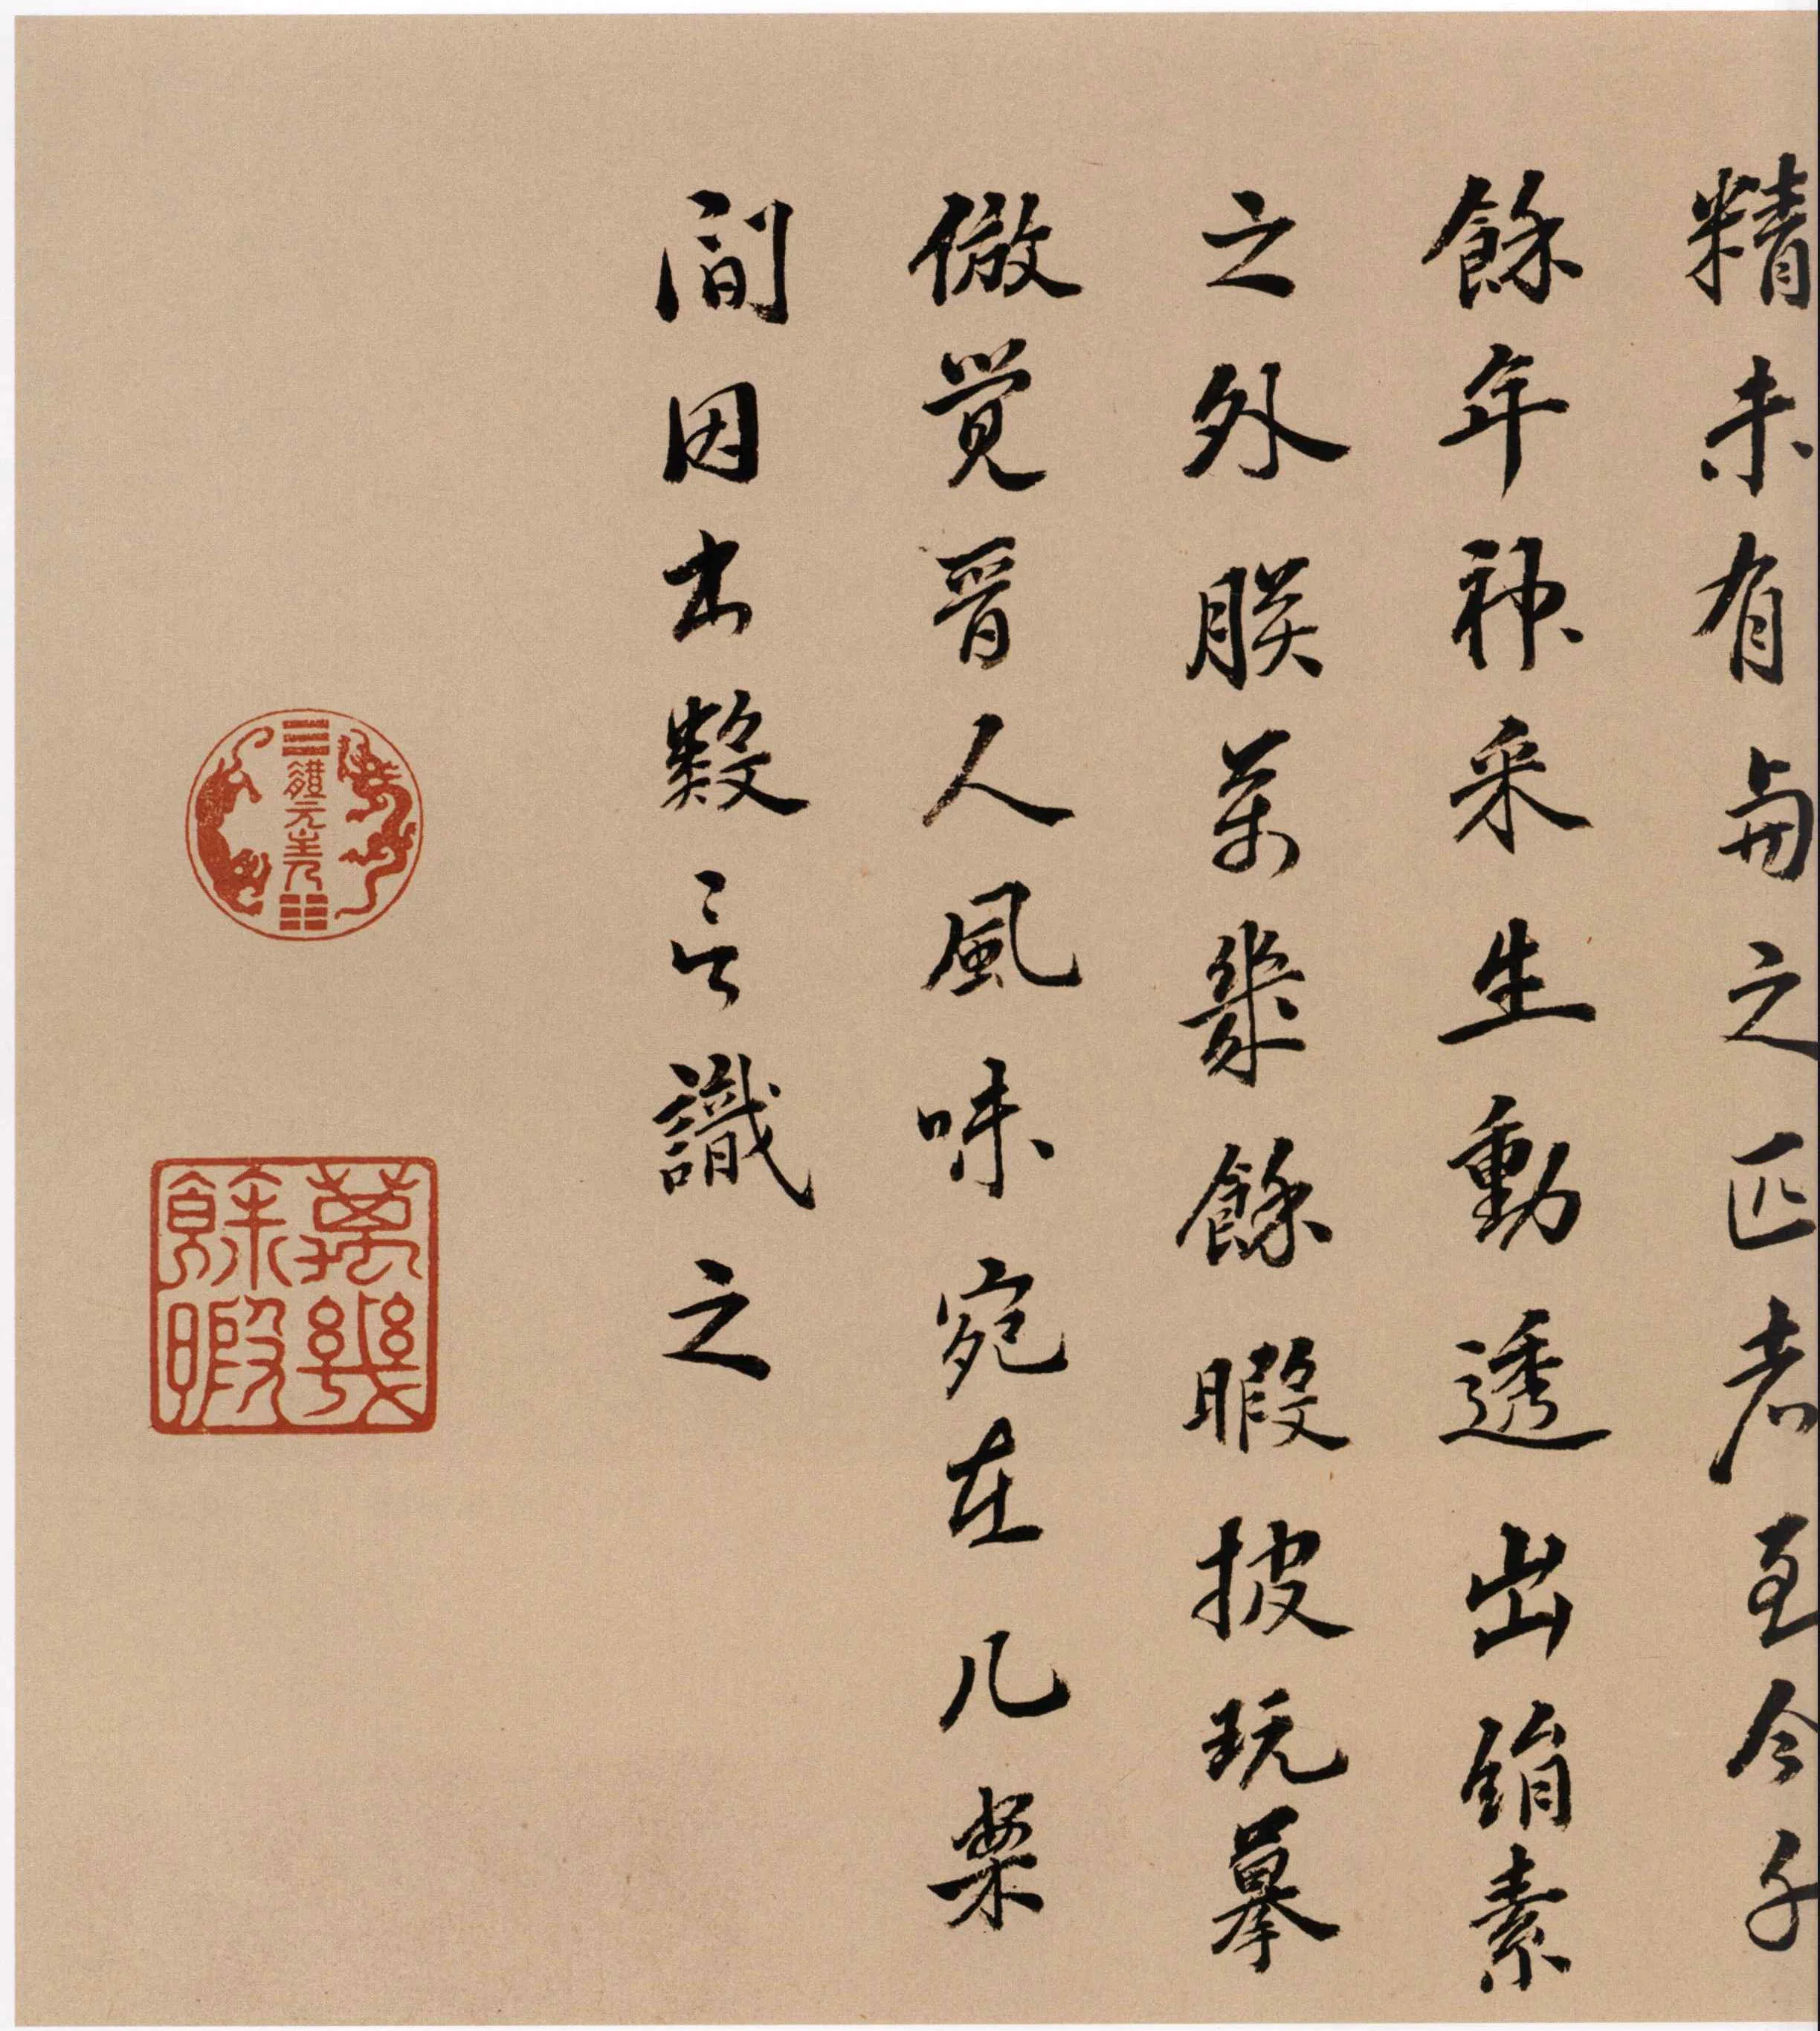 精未有與之匹者至今千
餘年神采生動透出絹素
之外朕萬幾餘暇披玩摹
倣覺晉人風味宛在几案
間因書數言識之
體元主人
萬幾餘暇